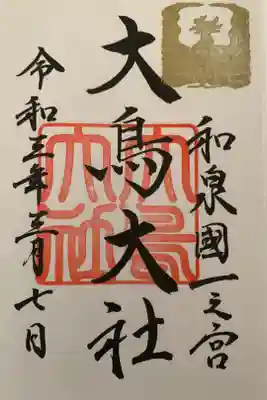 和泉國一之宮
大鳥大社
令和三年三月七日
大鳥大社